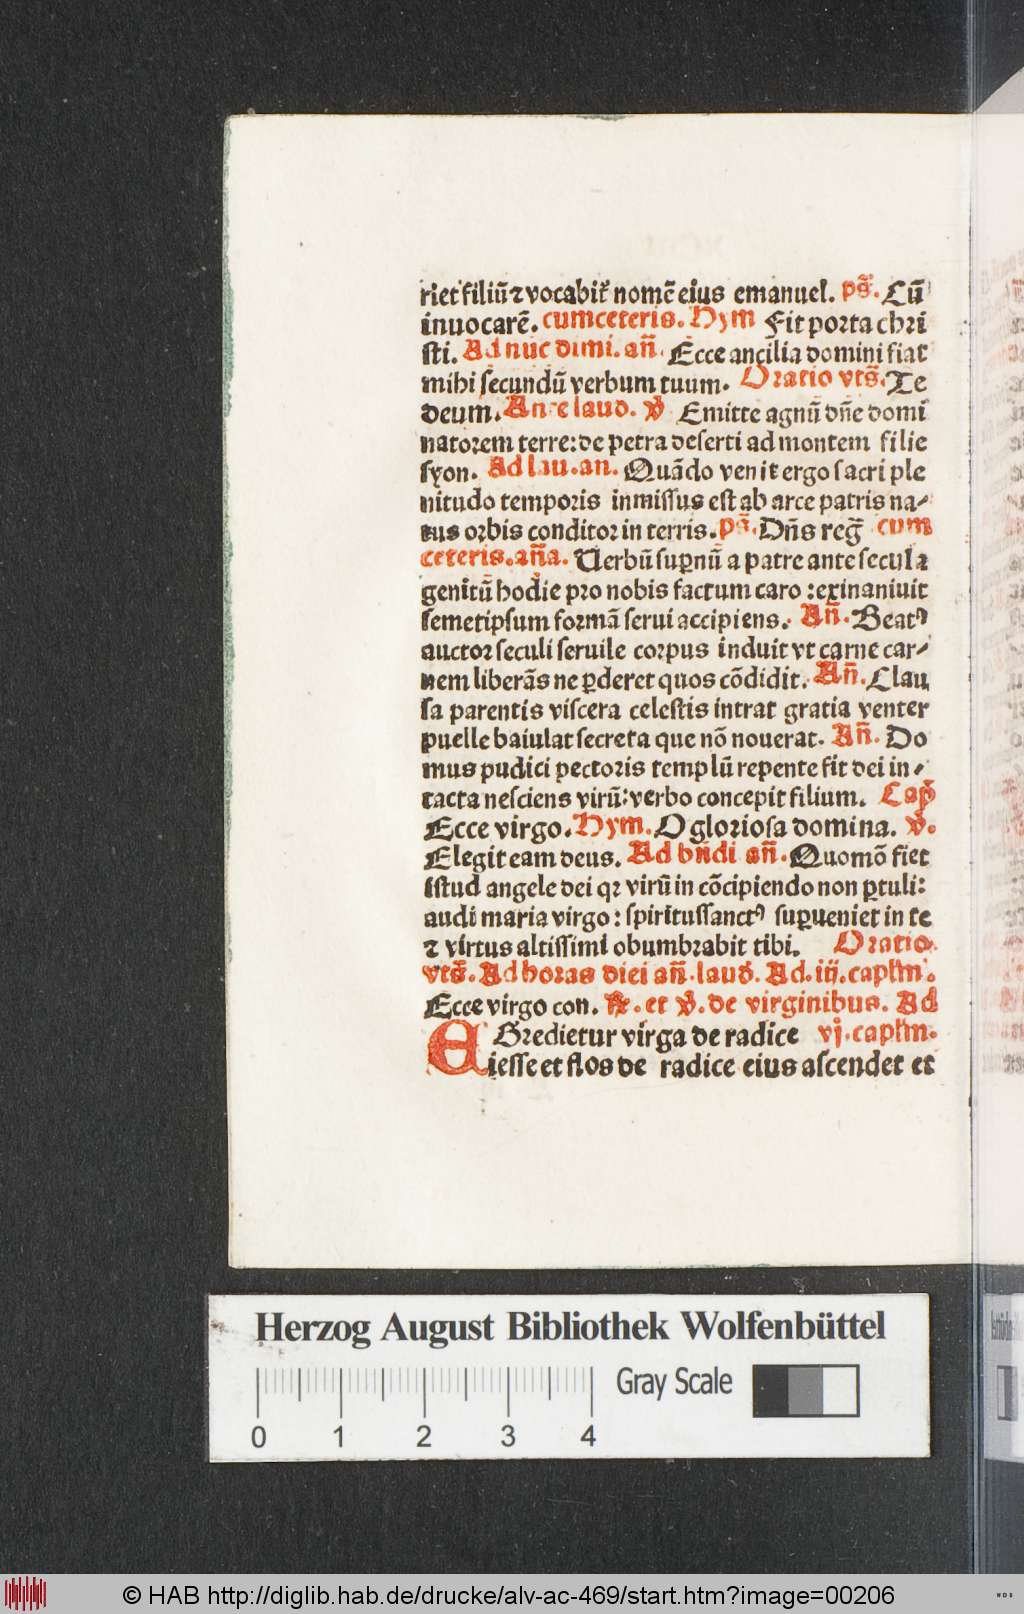 riet filiū ⁊ vocabit᷑ nomē eius emanuel. ps̄. Cū
inuocarē. cum ceteris. Hym Fit porta chri
sti. Ad nūc dimi. an̄. Ecce ancilla domini fiat
mihi secundū verbum tuum. Oratio vts̄. Te
deum. Ante laud. v̄ Emitte agnū dn̄e domī
natorem terre: de petra deserti ad montem filie
syon. Ad lau. an. Quādo venit ergo sacri ple
nitudo temporis inmissus est ab arce patris na-
tus orbis conditor in terris. ps̄. Dn̄s reḡ cum
ceteris. an̄a. Verbū suꝑnū a patre ante secula
genitū hodie pro nobis factum caro: exinaniuit
semetipsum formā serui accipiens. An̄. Beatꝰ
auctor seculi seruile corpus induit vt carne car-
nem liberās ne ꝑderet quos cōdidit. An̄. Clau
sa parentis viscera celestis intrat gratia venter
puelle baiulat secreta que nō nouerat. An̄. Do
mus pudici pectoris templū repente fit dei in-
tacta nesciens virū: verbo concepit filium. Cap̄
Ecce virgo. Hym. O gloriosa domina. v̄.
Elegit eam deus. Ad bn̄di an̄. Quomō fiet
istud angele dei qꝛ virū in cōcipiendo non ꝑtuli:
audi maria virgo: spiritussanctꝰ suꝑueniet in te
⁊ virtus altissimi obumbrabit tibi. Oratio
vts̄. Ad horas diei an̄. laud̄. Ad. iij. caplm̄.
Ecce virgo con. ℟. et v̄. de virginibus. Ad
EGredietur virga de radice vj. caplm̄.
iesse et flos de radice eius ascendet et
Herzog August Bibliothek Wolfenbüttel
Gray Scale
0 1 2 3 4
© HAB http://diglib.hab.de/drucke/alv-ac-469/start.htm?image=00206